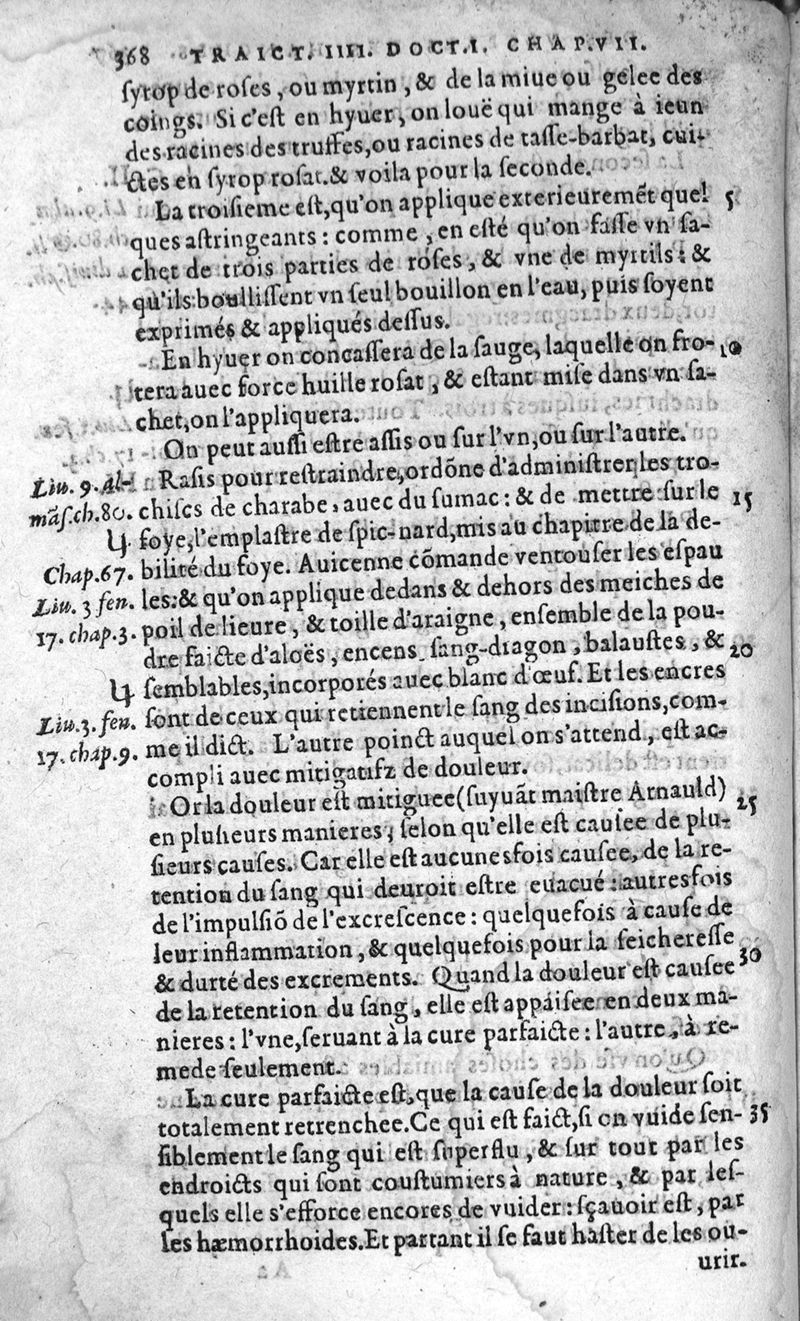 368 TRAICT. IIII. DOCT. I. CHAP. VII.
ſyrop de roſes, ou myrtin, & de la miue ou gelee des
coings. Si c'eſt en hyuer, on louë qui mange à ieun
des racines des truffes, ou racines de taſſe-barbat, cui-
ctes en ſyrop roſat. & voila pour la ſeconde.
La troiſieme eſt, qu'on applique exterieuremẽt quel 5
ques aſtringeants: comme, en eſté qu'on faſſe vn ſa-
chet de trois parties de roſes, & vne de myrtils: &
qu'ils bouilliſſent vn ſeul bouillon en l'eau, puis ſoyent
exprimés & appliqués deſſus.
En hyuer on concaſſera de la ſauge, laquelle on fro- 10
tera auec force huille roſat, & eſtant miſe dans vn ſa-
chet, on l'appliquera.
On peut auſſi eſtre aſſis ou ſur l'vn, ou ſur l'autre.
Liu. 9. Al- Raſis pour reſtraindre, ordõne d'adminiſtrer les tro-
mãſ. ch. 80. chiſcs de charabe, auec du ſumac: & de mettre ſur le 15
foye, l'emplaſtre de ſpic-nard, mis au chapitre de la de-
Chap. 67. bilité du foye. Auicenne cõmande ventouſer les eſpau
Liu. 3 fen. les: & qu'on applique dedans & dehors des meiches de
17. chap. 3. poil de lieure, & toille d'araigne, enſemble de la pou-
dre faicte d'aloës, encens, ſang-dragon, balauſtes, & 20
ſemblables, incorporés auec blanc d'œuf. Et les encres
Liu. 3. fen. ſont de ceux qui retiennent le ſang des inciſions, com-
17. chap. 9. me il dict. L'autre poinct auquel on s'attend, eſt ac-
compli auec mitigatifz de douleur.
Or la douleur eſt mitiguee (ſuyuãt maiſtre Arnauld) 25
en pluſieurs manieres, ſelon qu'elle eſt cauſee de plu-
ſieurs cauſes. Car elle eſt aucunesfois cauſee, de la re-
tention du ſang qui deuroit eſtre euacué: autresfois
de l'impulſiõ de l'excreſcence: quelquefois à cauſe de
leur inflammation, & quelquefois pour la ſeichereſſe 30
& durté des excrements. Quand la douleur eſt cauſee
de la retention du ſang, elle eſt appaiſee en deux ma-
nieres: l'vne, ſeruant à la cure parfaicte: l'autre, à re-
mede ſeulement.
La cure parfaicte eſt, que la cauſe de la douleur ſoit
totalement retrenchee. Ce qui eſt faict, ſi on vuide ſen- 35
ſiblement le ſang qui eſt ſuperflu, & ſur tout par les
endroicts qui ſont couſtumiers à nature, & par leſ-
quels elle s'efforce encores de vuider: ſçauoir eſt, par
les hæmorrhoides. Et partant il ſe faut haſter de les ou-
urir.